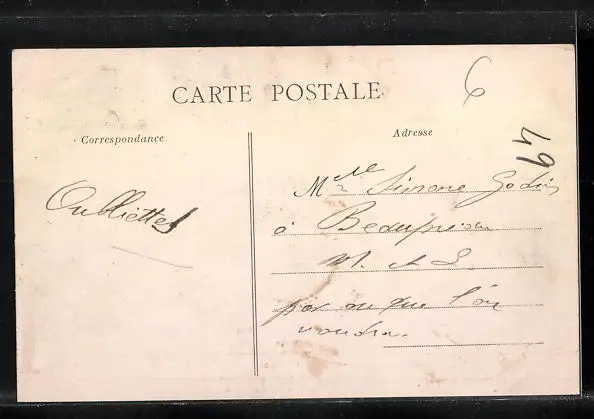 CARTE POSTALE
6
Correspondance
Adresse
67
Mlle Simone Godin
Oubliettes
à Beaupréau
M. & L.
par ou que l'on
voudra.